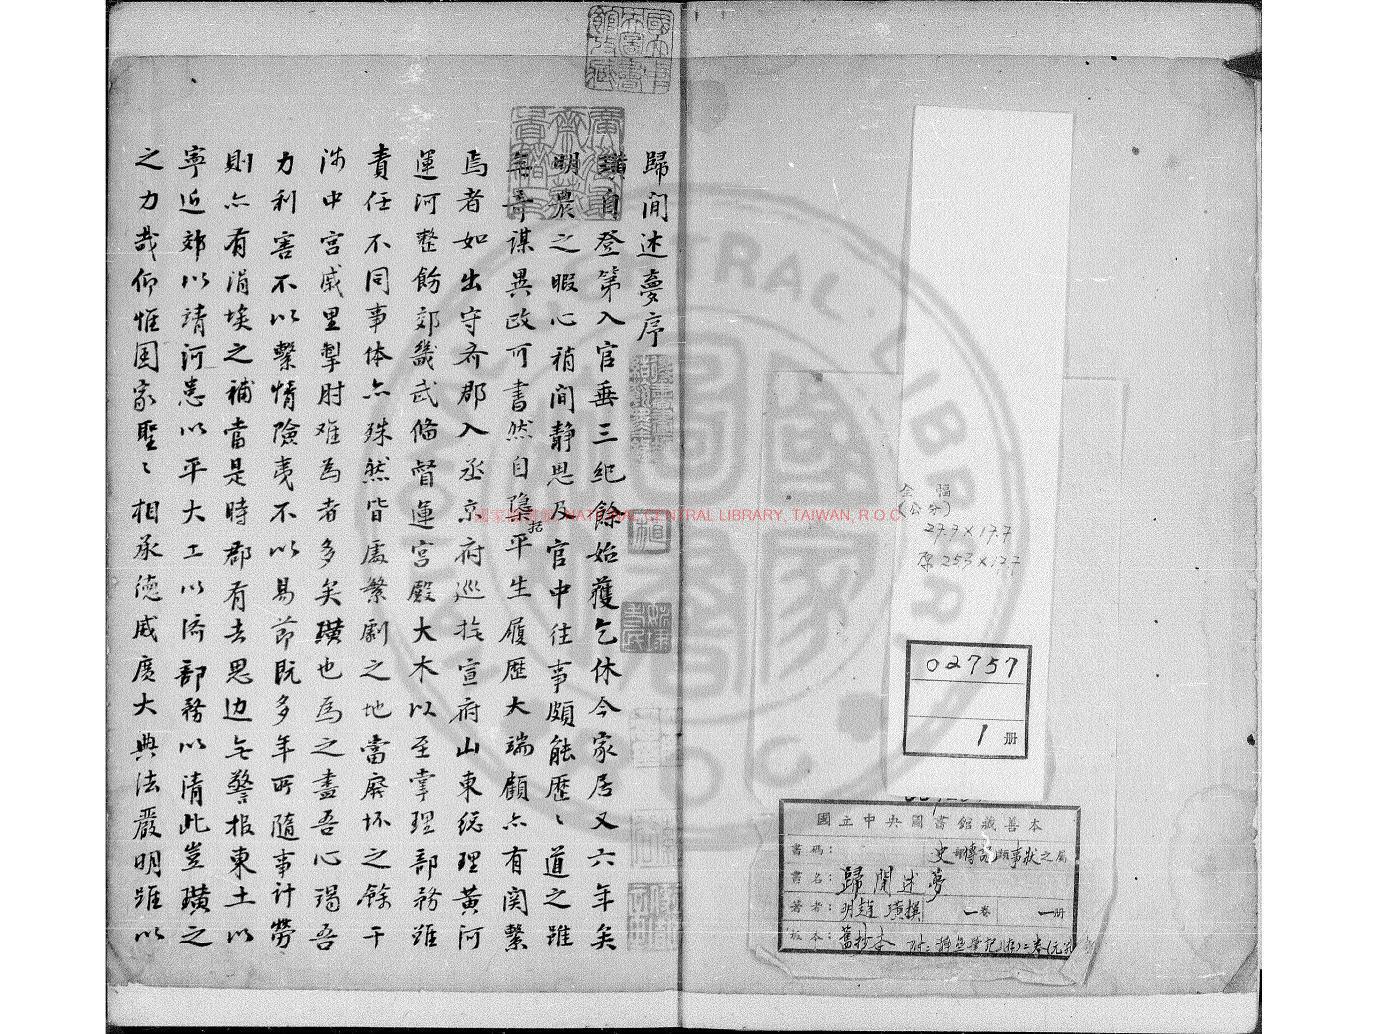 歸閒述夢序
璜自登第入官垂三紀餘始獲乞休今家居又六年矣
明農之暇心稍閒静思及官中往事頗能歷〻道之雖
無奇謀異政可書然自隐括平生履歷大端顧亦有関繫
焉者如出守齐郡入丞京府巡抚宣府山東総理黄河
運河整飭郊畿武俻督運宫殿大木以至掌理部務雖
責任不同事体亦殊然皆處繁劇之地當廢坏之餘干
涉中宫戚里掣肘难為者多矣璜也為之盡吾心竭吾
力利害不以繫情險夷不以易節既多年所隨事计勞
則亦有涓埃之補當是時郡有去思边无警报東土以
寧近郊以靖河患以平大工以济部務以清此豈璜之
之力哉仰惟囯家聖〻相承德威廣大典法嚴明雖以
國家圖書館 NATIONAL CENTRAL LIBRARY, TAIWAN, R.O.C.
全幅
(公分)
27.7×17.7
02757
1 册
國立中央圖書館藏善本
書碼：
史部傳記類事狀之屬
書名：歸閒述夢
著者：明趙璜撰
一卷
一册
版本：舊抄本